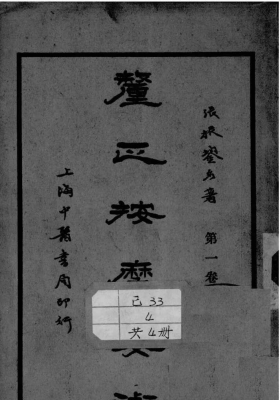 張振鋆著 第一卷
釐正按摩要術
上海中醫書局印行
己33
4
共4册